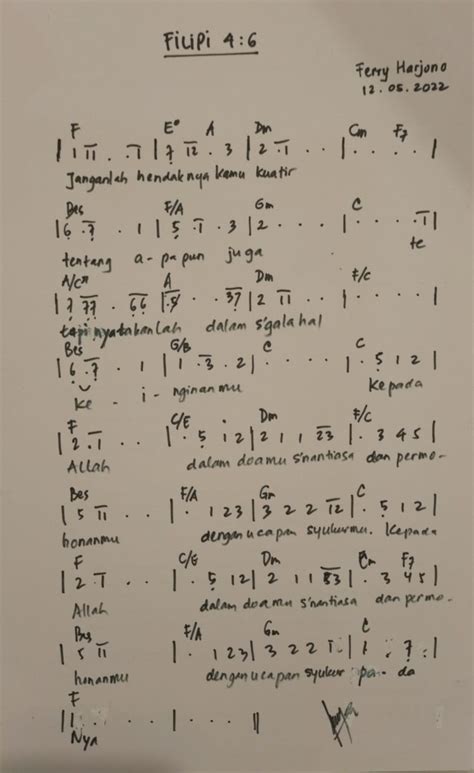 FILIPI 4:6
Ferry Harjono
12.05.2022
F E° A Dm Cm F7
| 1 11 . .1 | 7 12 . 3 | 2 .1 . . | . . . . |
Janganlah hendaknya kamu kuatir
Bes F/A Gm C
| 6 .7 . 1 | 5 .1 . 3 | 2 . . . | . . . .1 |
tentang a-papun juga te
A/C# A Dm F/C
| 7 77 . 66 | .5 . . 37 | 2 11 . . | . . . . |
tapi nyatakanlah dalam s'galahal
Bes G/B C C
| 6 .7 . 1 | 1 .3 . 2 | . . . . | . 5 1 2 |
ke - i - nginanmu kepada
F C/E Dm F/C
| 2 .1 . . | . 5 12 | 2 1 1 23 | . 3 4 5 |
Allah dalam doamu s'nantiasa dan permo-
Bes F/A Gm C
| 5 11 . . | . 1 2 3 | 3 2 2 12 | . 5 1 2 |
honanmu dengan ucapan syukurmu. Kepada
F C/E Dm Cm F7
| 2 .1 . . | . 5 12 | 2 1 1 33 | . 3 4 5 |
Allah dalam doamu s'nantiasa dan permo-
Bes F/A Gm C
| 5 11 | . 1 2 3 | 3 2 2 1 . | 1 . 7 . |
honanmu dengan ucapan syukur pa-da
F
| 1 . . . . | . . . ||
Nya